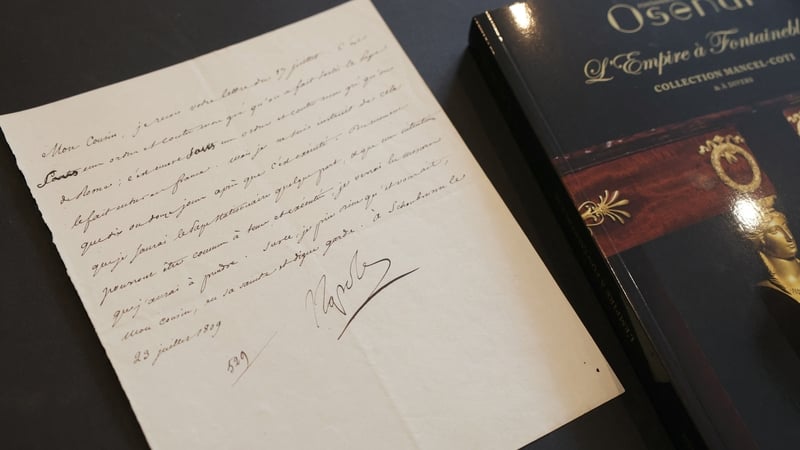 Mon Cousin, je reçois votre lettre du 17 juillet. C'est
sans mon ordre et contre mon gré qu'on a fait sortir le Pape
de Rome ; c'est encore sans mon ordre et contre mon gré qu'on
le fait entrer en france. Mais je ne suis instruit de cela
que dix ou douze jours après que c'est exécuté. Du moment
que je saurai le Pape stationnaire quelque part, et que vos intentions
pourront être connues à tems et exécutées, je verrai les mesures
que j'aurai à prendre. Sur ce, je prie Dieu qu'il vous ait,
Mon Cousin, en sa sainte et digne garde. à Schönbrunn le
23 juillet 1809
Napole
529
Osenat
L'Empire à Fontainebl
COLLECTION MANCEL-COTI
& À DIVERS